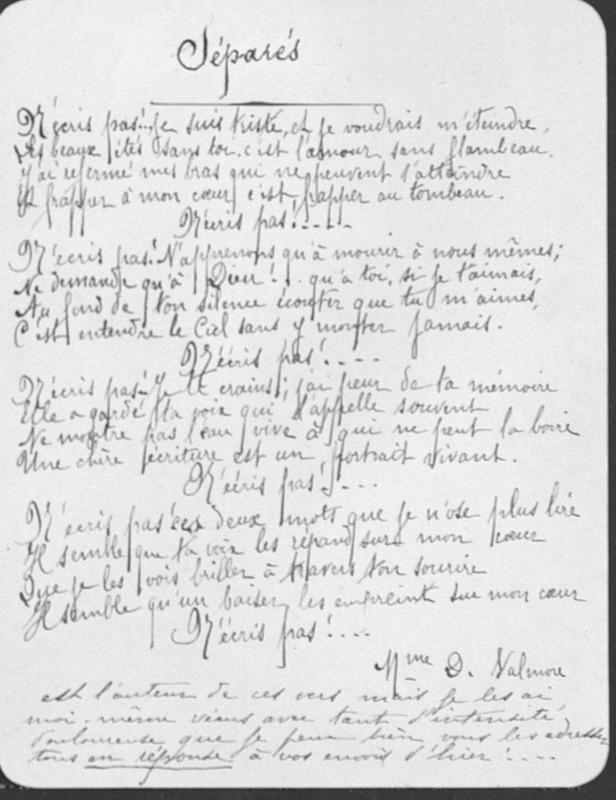 Séparés
N'écris pas!.. Je suis triste, et je voudrais m'éteindre,
Les beaux étés sans toi, c'est l'amour sans flambeau.
J'ai refermé mes bras qui ne peuvent t'atteindre
Et frapper à mon cœur c'est frapper au tombeau.
N'écris pas!.....
N'écris pas! N'apprenons qu'à mourir à nous mêmes;
Ne demande qu'à Dieu!... qu'à toi, si je t'aimais,
Au fond de ton silence écouter que tu m'aimes,
C'est entendre le Ciel sans y monter jamais.
N'écris pas!....
N'écris pas! Je te crains; j'ai peur de ta mémoire
Elle a gardé ta voix qui t'appelle souvent
Ne montre pas l'eau vive à qui ne peut la boire
Une chère écriture est un portrait vivant.
N'écris pas!...
N'écris pas! ces deux mots que je n'ose plus lire
Il semble que ta voix les répand sur mon cœur
Que je les vois briller à travers ton sourire
Il semble qu'un baiser les empreint sur mon cœur
N'écris pas!....
Mme D. Valmore
est l'auteur de ces vers mais je les ai
moi-même vécus avec tant d'intensité
douloureuse que je peux bien vous les adresser
tous en réponse à vos envois d'hier!....